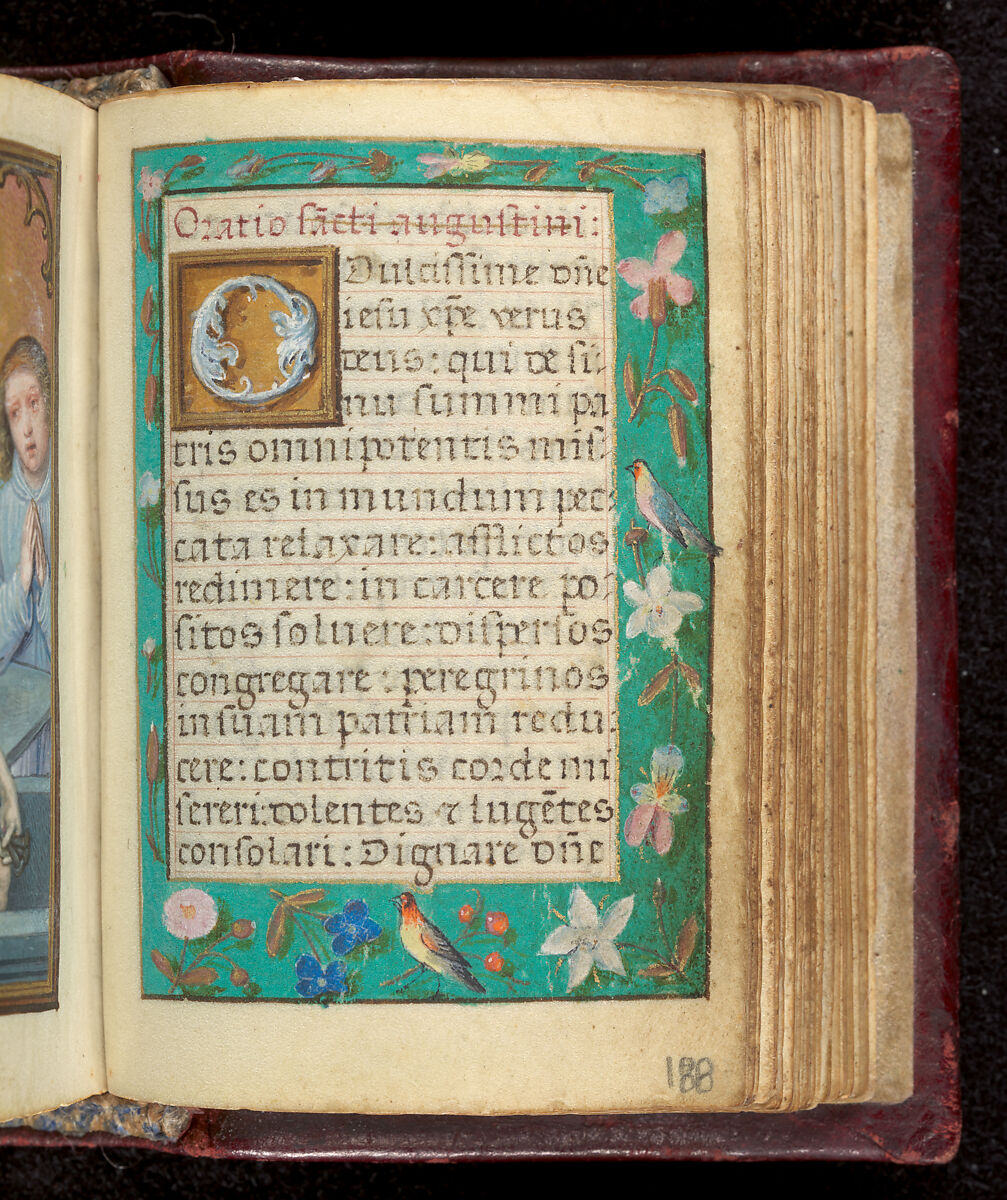 Oratio sācti augustini:
O Dulcissime dn̄e
iesu xp̄e verus
deus: qui de si-
nu summi pa
tris omnipotentis mis-
sus es in mundum pec-
cata relaxare: afflictos
redimere: in carcere po-
sitos soluere: dispersos
congregare: peregrinos
in suam patriam redu-
cere: contritis corde mi
sereri: dolentes ⁊ lugētes
consolari: Dignare dn̄e
188